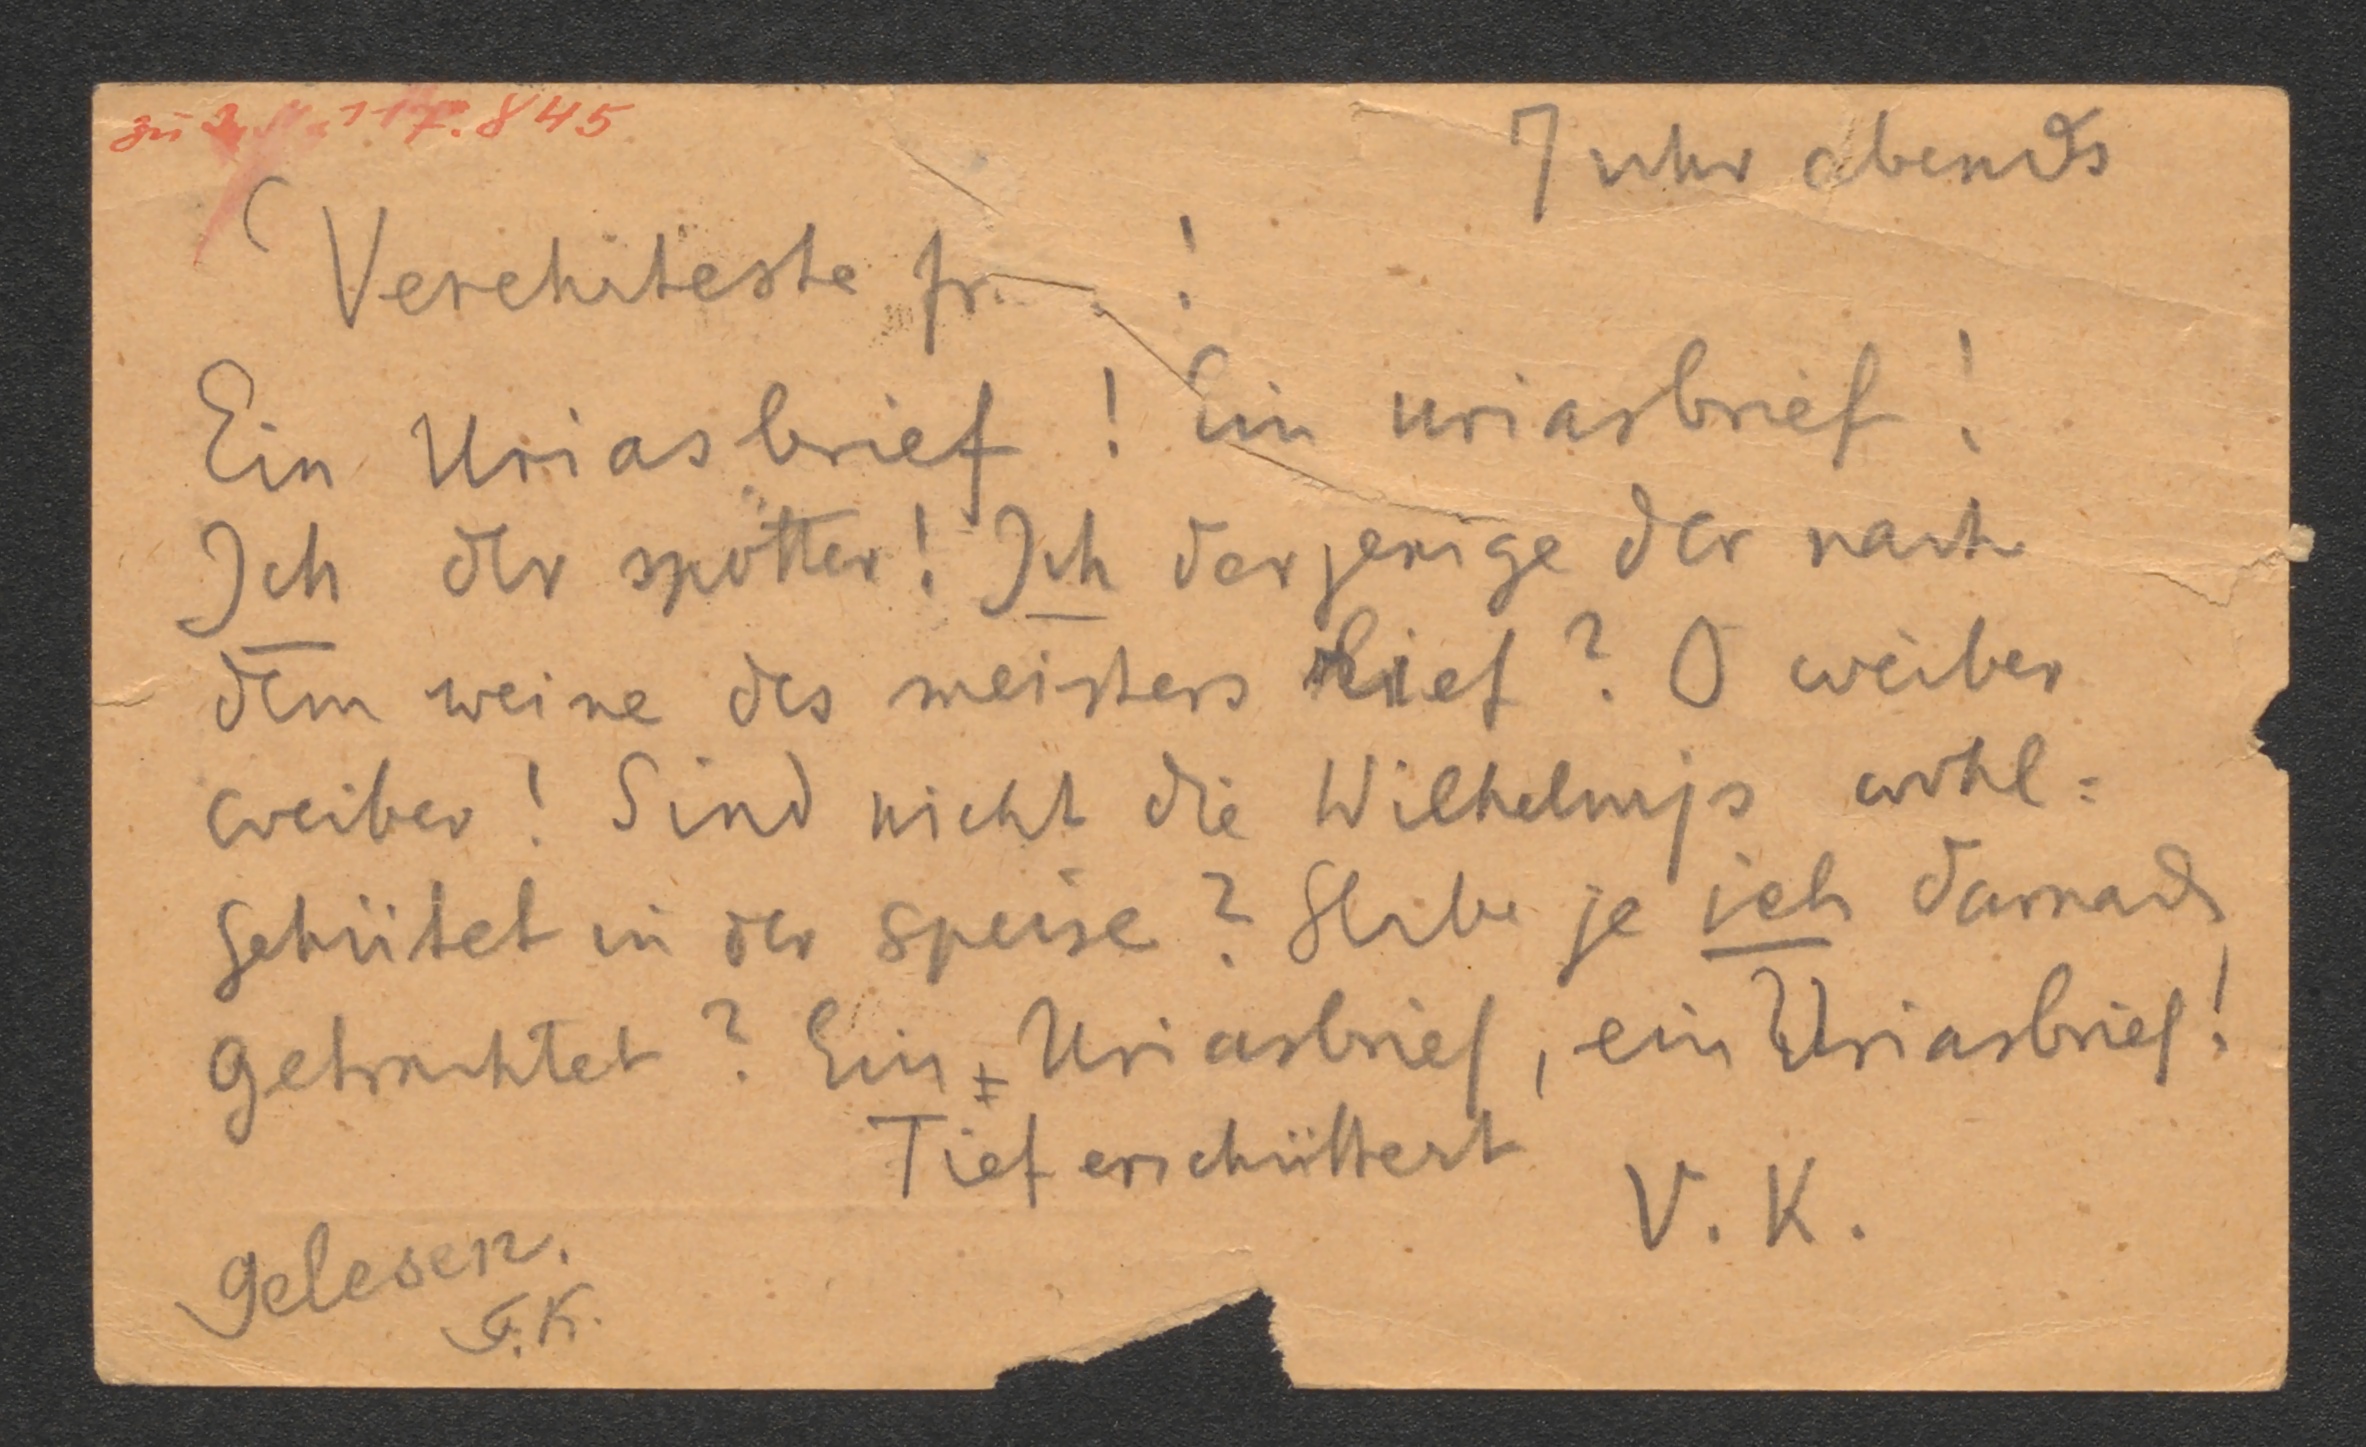 zu 117.845
7 uhr abends
Verehrteste Fr. !
Ein Uriasbrief ! Ein uriasbrief !
Ich der spötter! Ich derjenige der nach
dem weine des meisters rief ? O weiber
weiber ! Sind nicht die Wilhelmjs wohl=
gehütet in der speise ? Habe je ich darnach
getrachtet ? Ein Uriasbrief, ein Uriasbrief!
Tief erschüttert
V. K.
gelesen.
F.K.